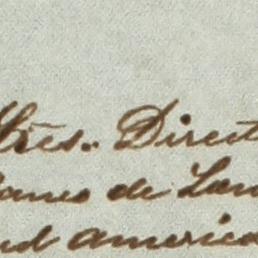 Sres. Direct
Banco de Lon
ud America